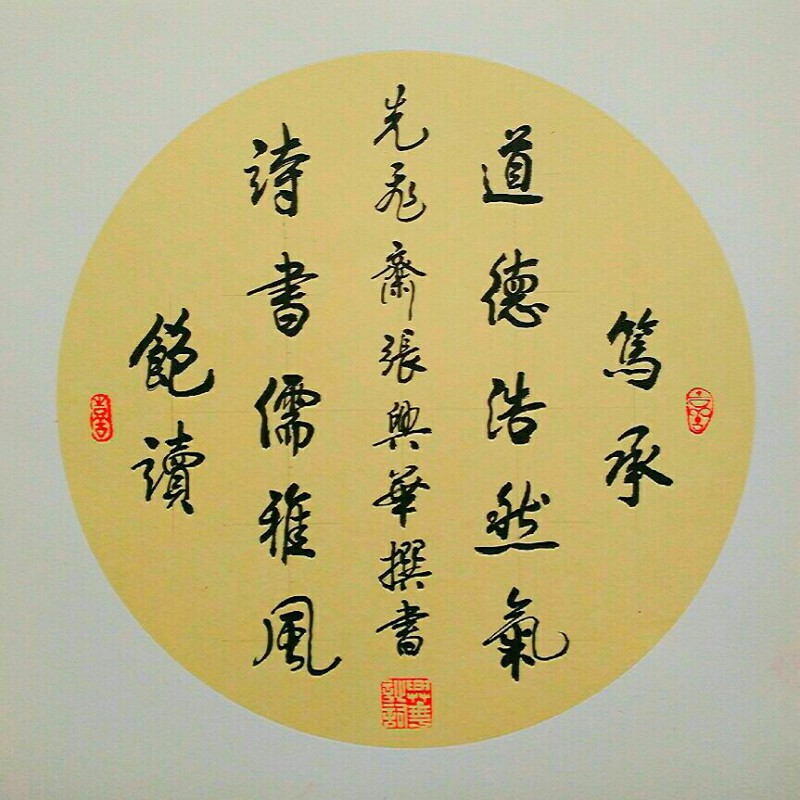 篤承
道德浩然氣
飽讀
詩書儒雅風
先飛齋張興華撰書